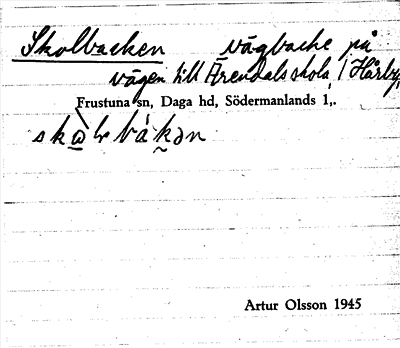 Skolbacken vägbacke på
vägen till Ärendals skola, Härby,
Frustuna sn, Daga hd, Södermanlands l,.
Artur Olsson 1945